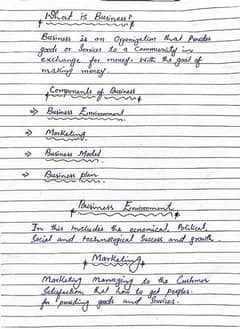 What is Business?
Business is an Organization that Provides
goods or Services to a Community in
exchange for money. With the goal of
making money.
Components of Business
⇒ Business Environment
⇒ Marketing.
⇒ Business Model
⇒ Business plan
Business Environment
In this includes the economical, Political,
Social and technological Success and growth.
Marketing
Marketing managing to the Customer
Satisfaction that how to get peoples.
for providing goods and Services.